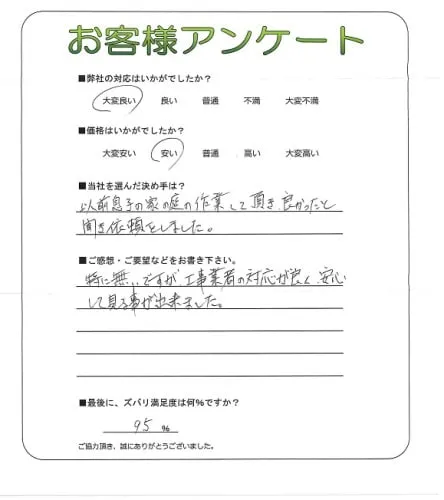 お客様アンケート
■弊社の対応はいかがでしたか?
大変良い 良い 普通 不満 大変不満
■価格はいかがでしたか?
大変安い 安い 普通 高い 大変高い
■当社を選んだ決め手は?
以前息子の家の庭の作業して頂き、良かったと
聞き依頼をしました。
■ご感想・ご要望などをお書き下さい。
特に無いですが工事業者の対応が良く、安心
して見る事が出来ました。
■最後に、ズバリ満足度は何%ですか?
95 %
ご協力頂き、誠にありがとうございました。